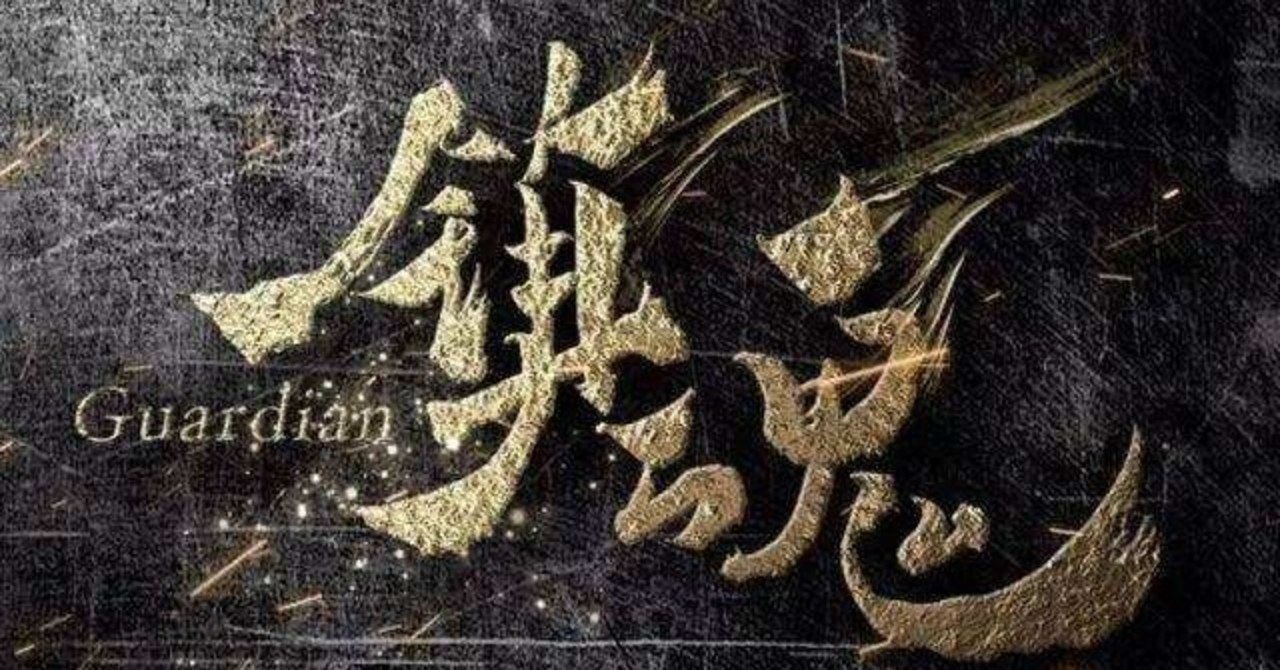 镇魂
Guardian